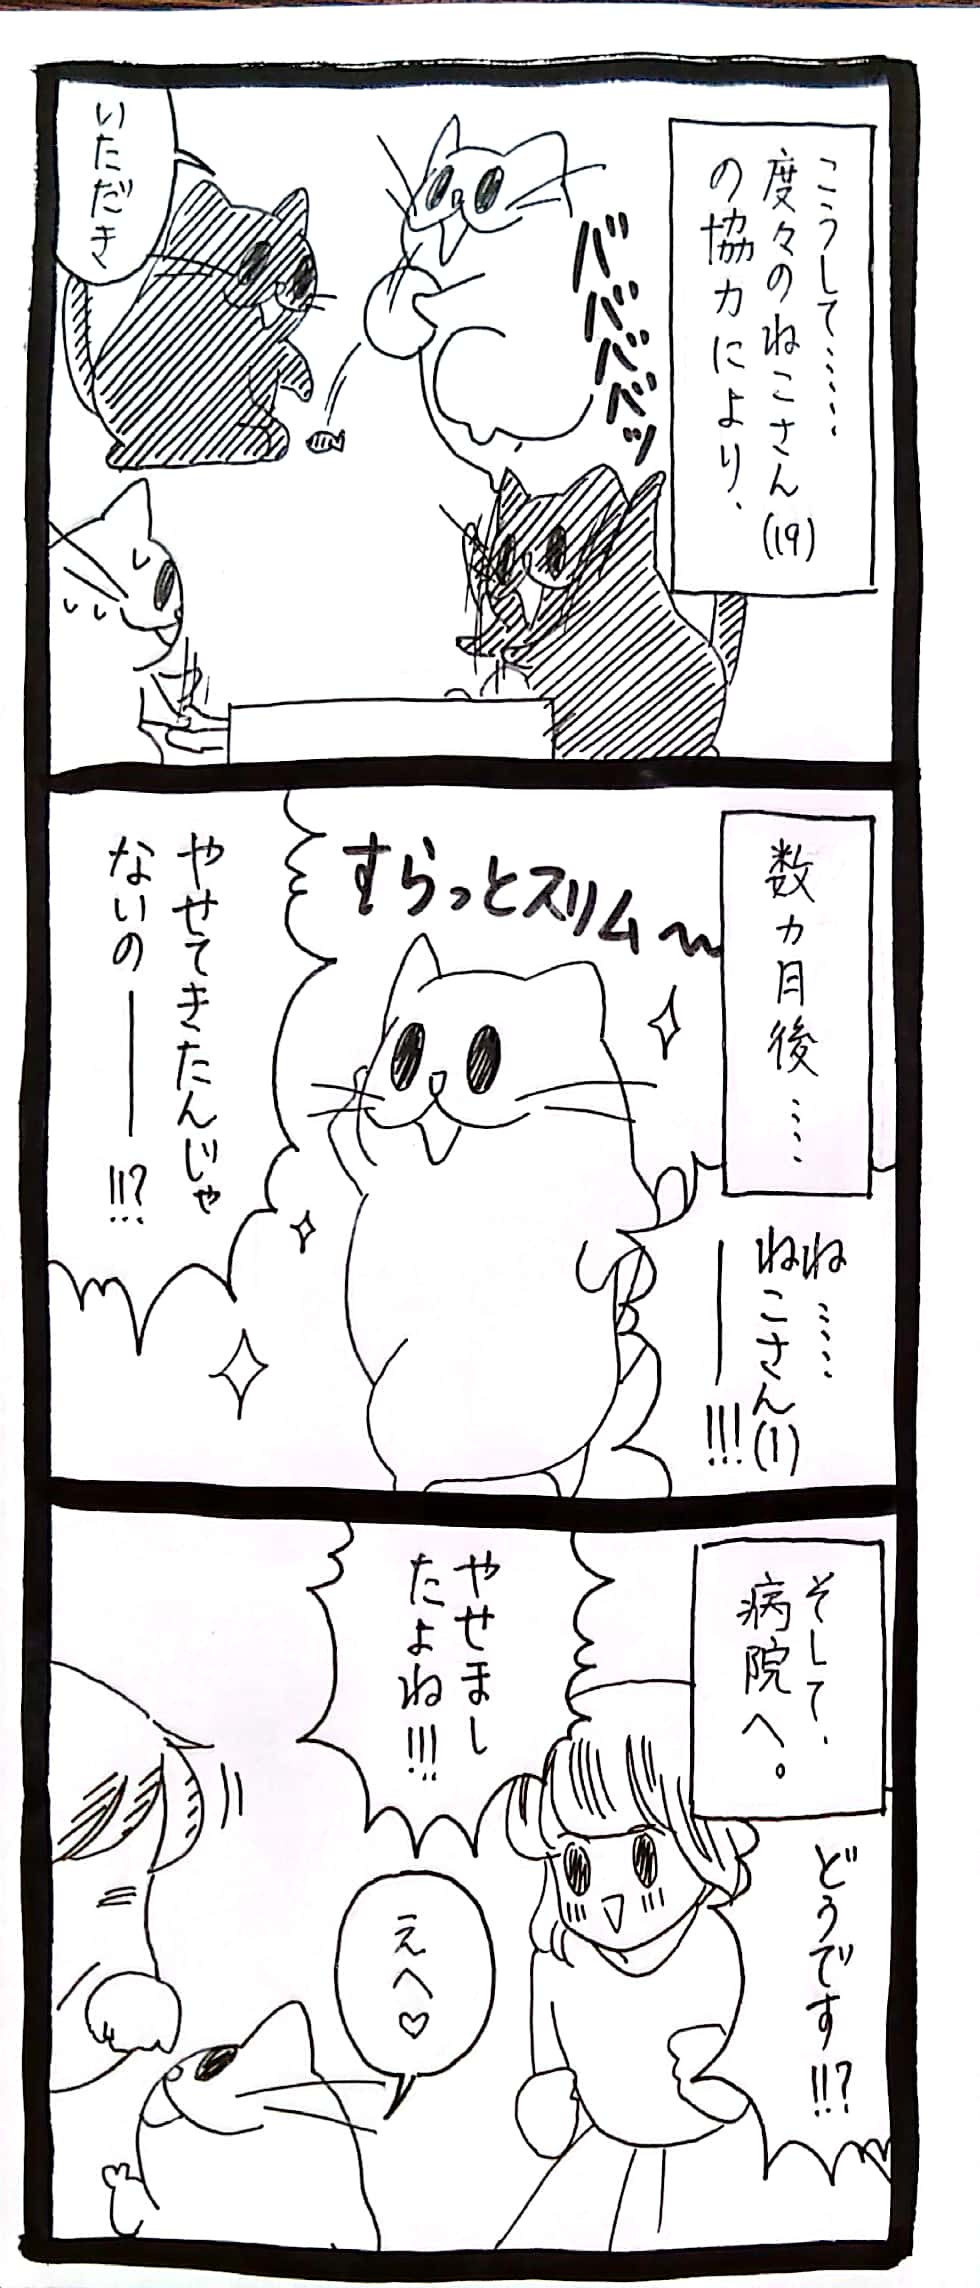 こうして……
度々のねこさん(19)
の協力により、
ババババッ
いただき
数カ月後……
すらっとスリム〜
ね……
ねこさん(1)
ー!!!
やせてきたんじゃ
ないのー!!?
そして、
病院へ。
どうです!!?
やせまし
たよね!!!
えへ♡